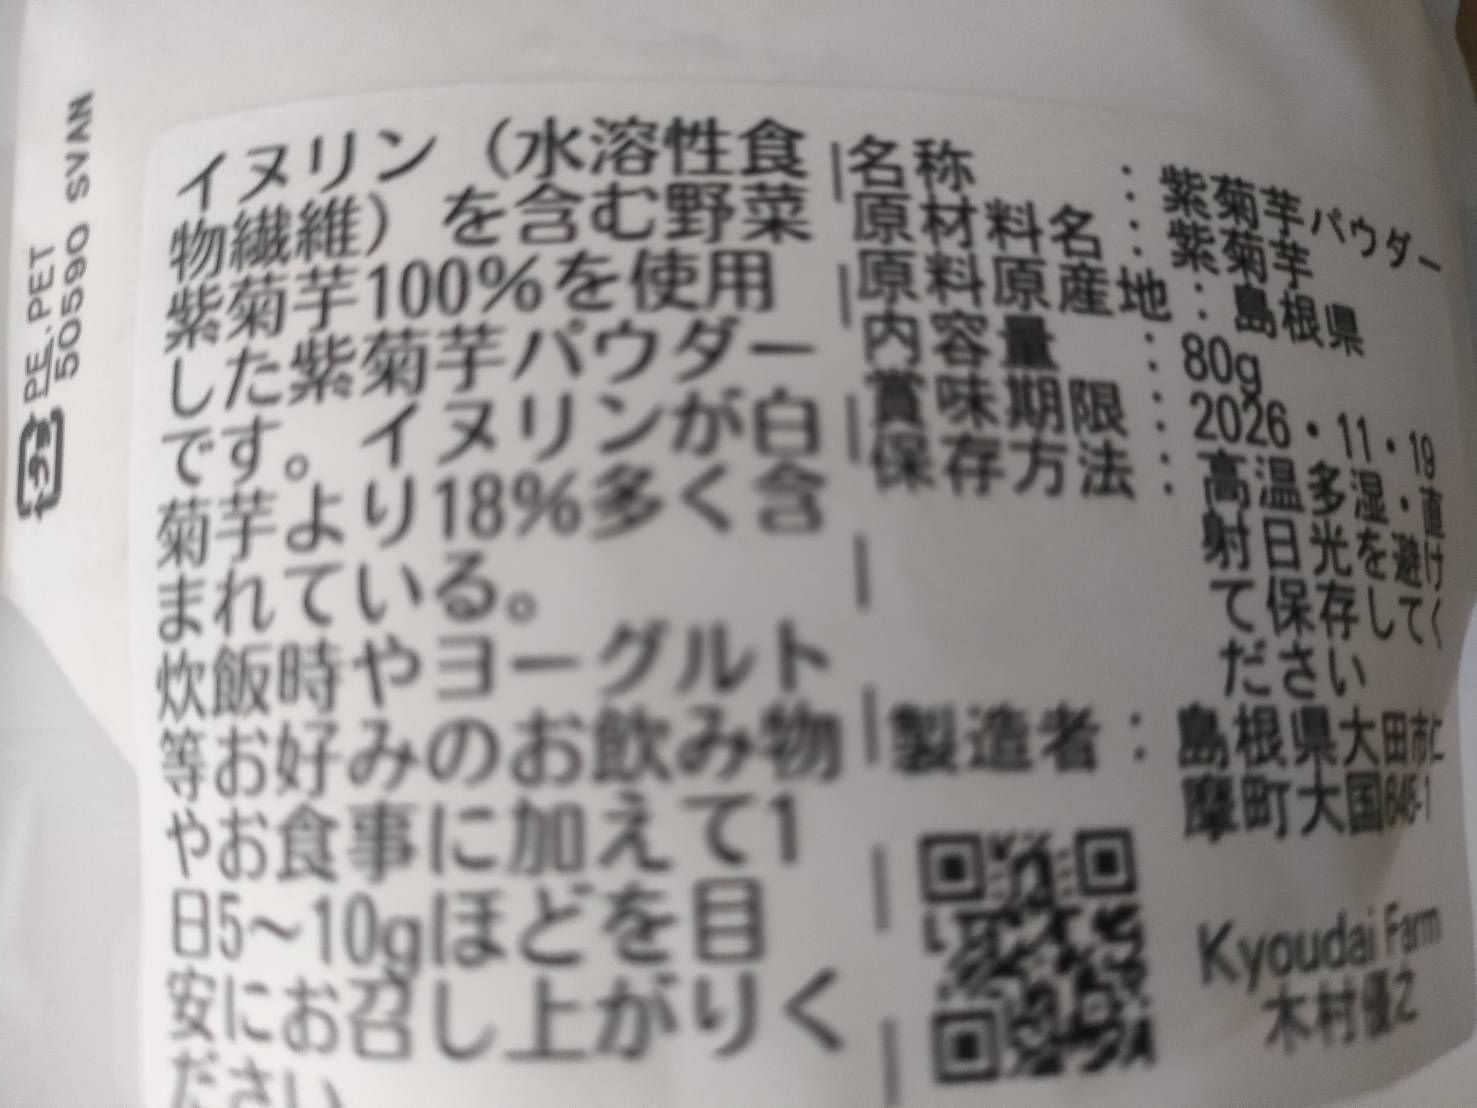 PE.PET
50590 SVAN
プラ
イヌリン（水溶性食
物繊維）を含む野菜
紫菊芋100%を使用
した紫菊芋パウダー
です。イヌリンが白
菊芋より18%多く含
まれている。
炊飯時やヨーグルト
等お好みのお飲み物
やお食事に加えて1
日5～10gほどを目
安にお召し上がりく
ださい
名称：紫菊芋パウダー
原材料名：紫菊芋
原料原産地：島根県
内容量：80g
賞味期限：2026・11・19
保存方法：高温多湿・直
射日光を避け
て保存してく
ださい
製造者：島根県大田市仁
摩町大国645-1
Kyoudai Farm
木村優之